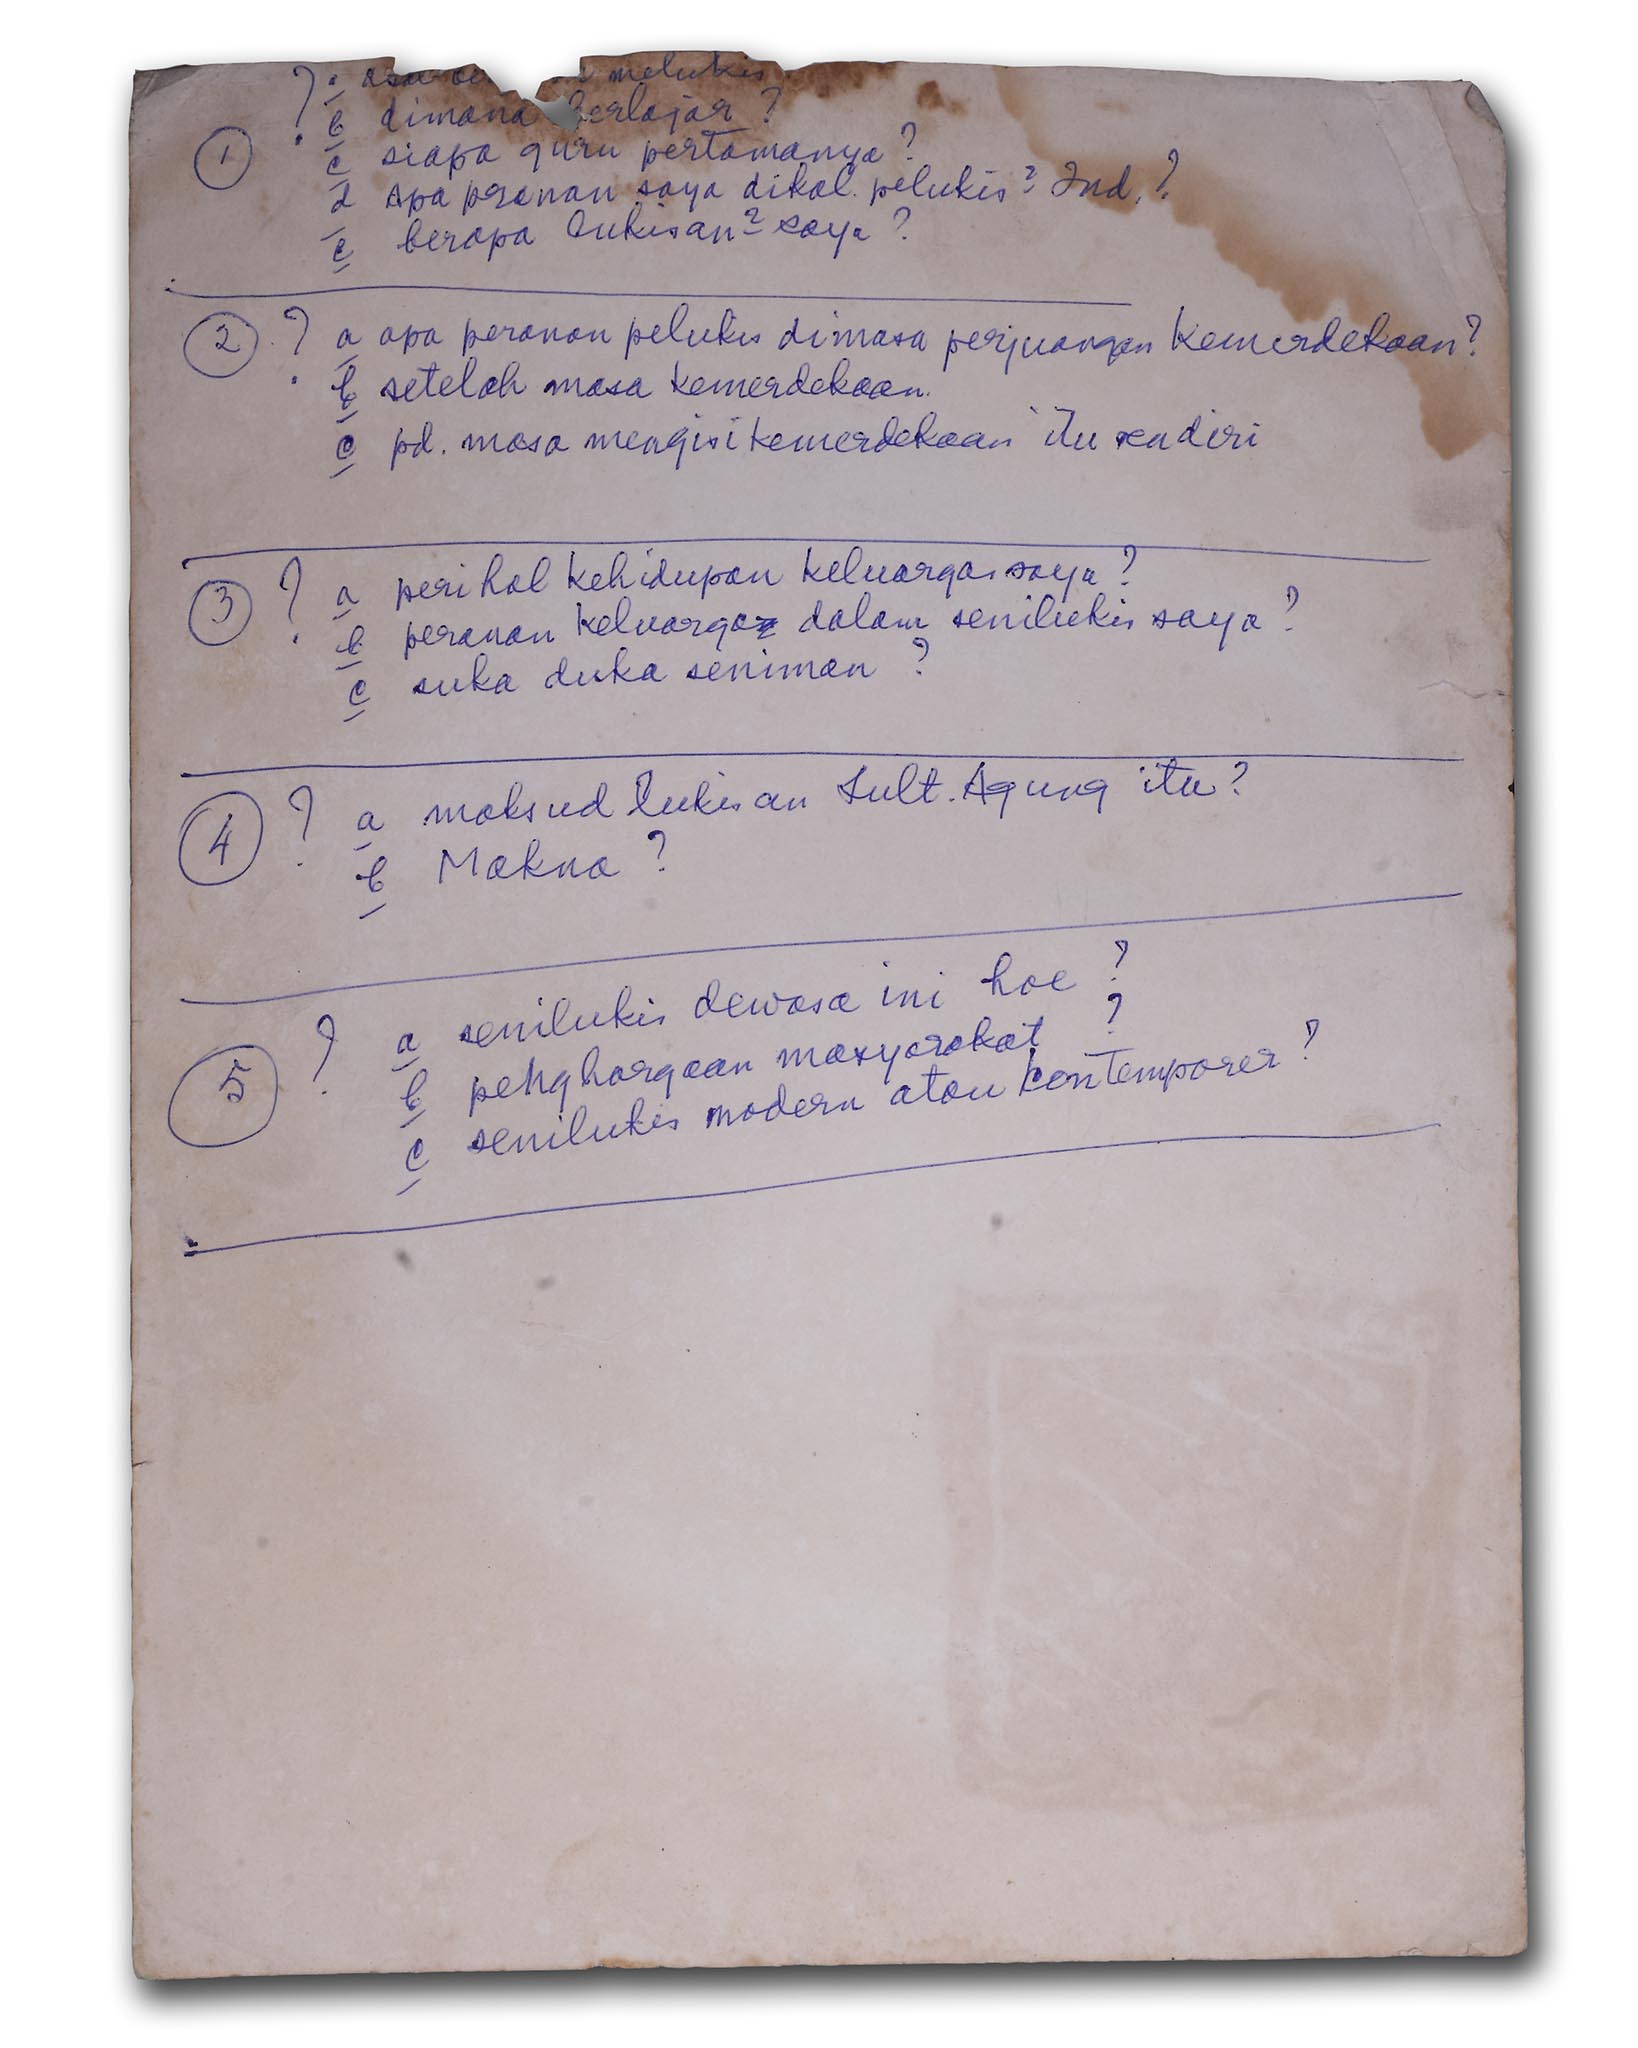 ① ? melukis
b dimana berlajar ?
c siapa guru pertamanya ?
d Apa peranan saya dikal. pelukis² Ind. ?
e berapa lukisan² saya ?
② ? a apa peranan pelukis dimasa perjuangan Kemerdekaan?
b setelah masa kemerdekaan.
c pd. masa mengisi kemerdekaan itu sendiri
③ ? a perihal kehidupan keluarga saya ?
b peranan keluarga dalam senilukis saya ?
c suka duka seniman ?
④ ? a maksud lukisan Sult. Agung itu ?
b Makna ?
⑤ ? a senilukis dewasa ini hoe ?
b penghargaan masyarakat ?
c senilukis modern atau kontemporer ?